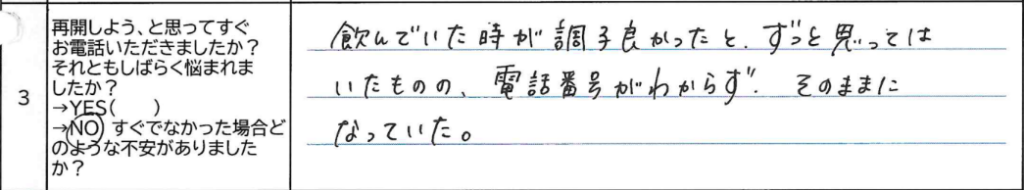 3
再開しよう、と思ってすぐ
お電話いただきましたか？
それともしばらく悩まれま
したか？
→YES(　　)
→NO) すぐでなかった場合ど
のような不安がありました
か？
飲んでいた時が調子良かったと、ずっと思っては
いたものの、電話番号がわからず、そのままに
なっていた。